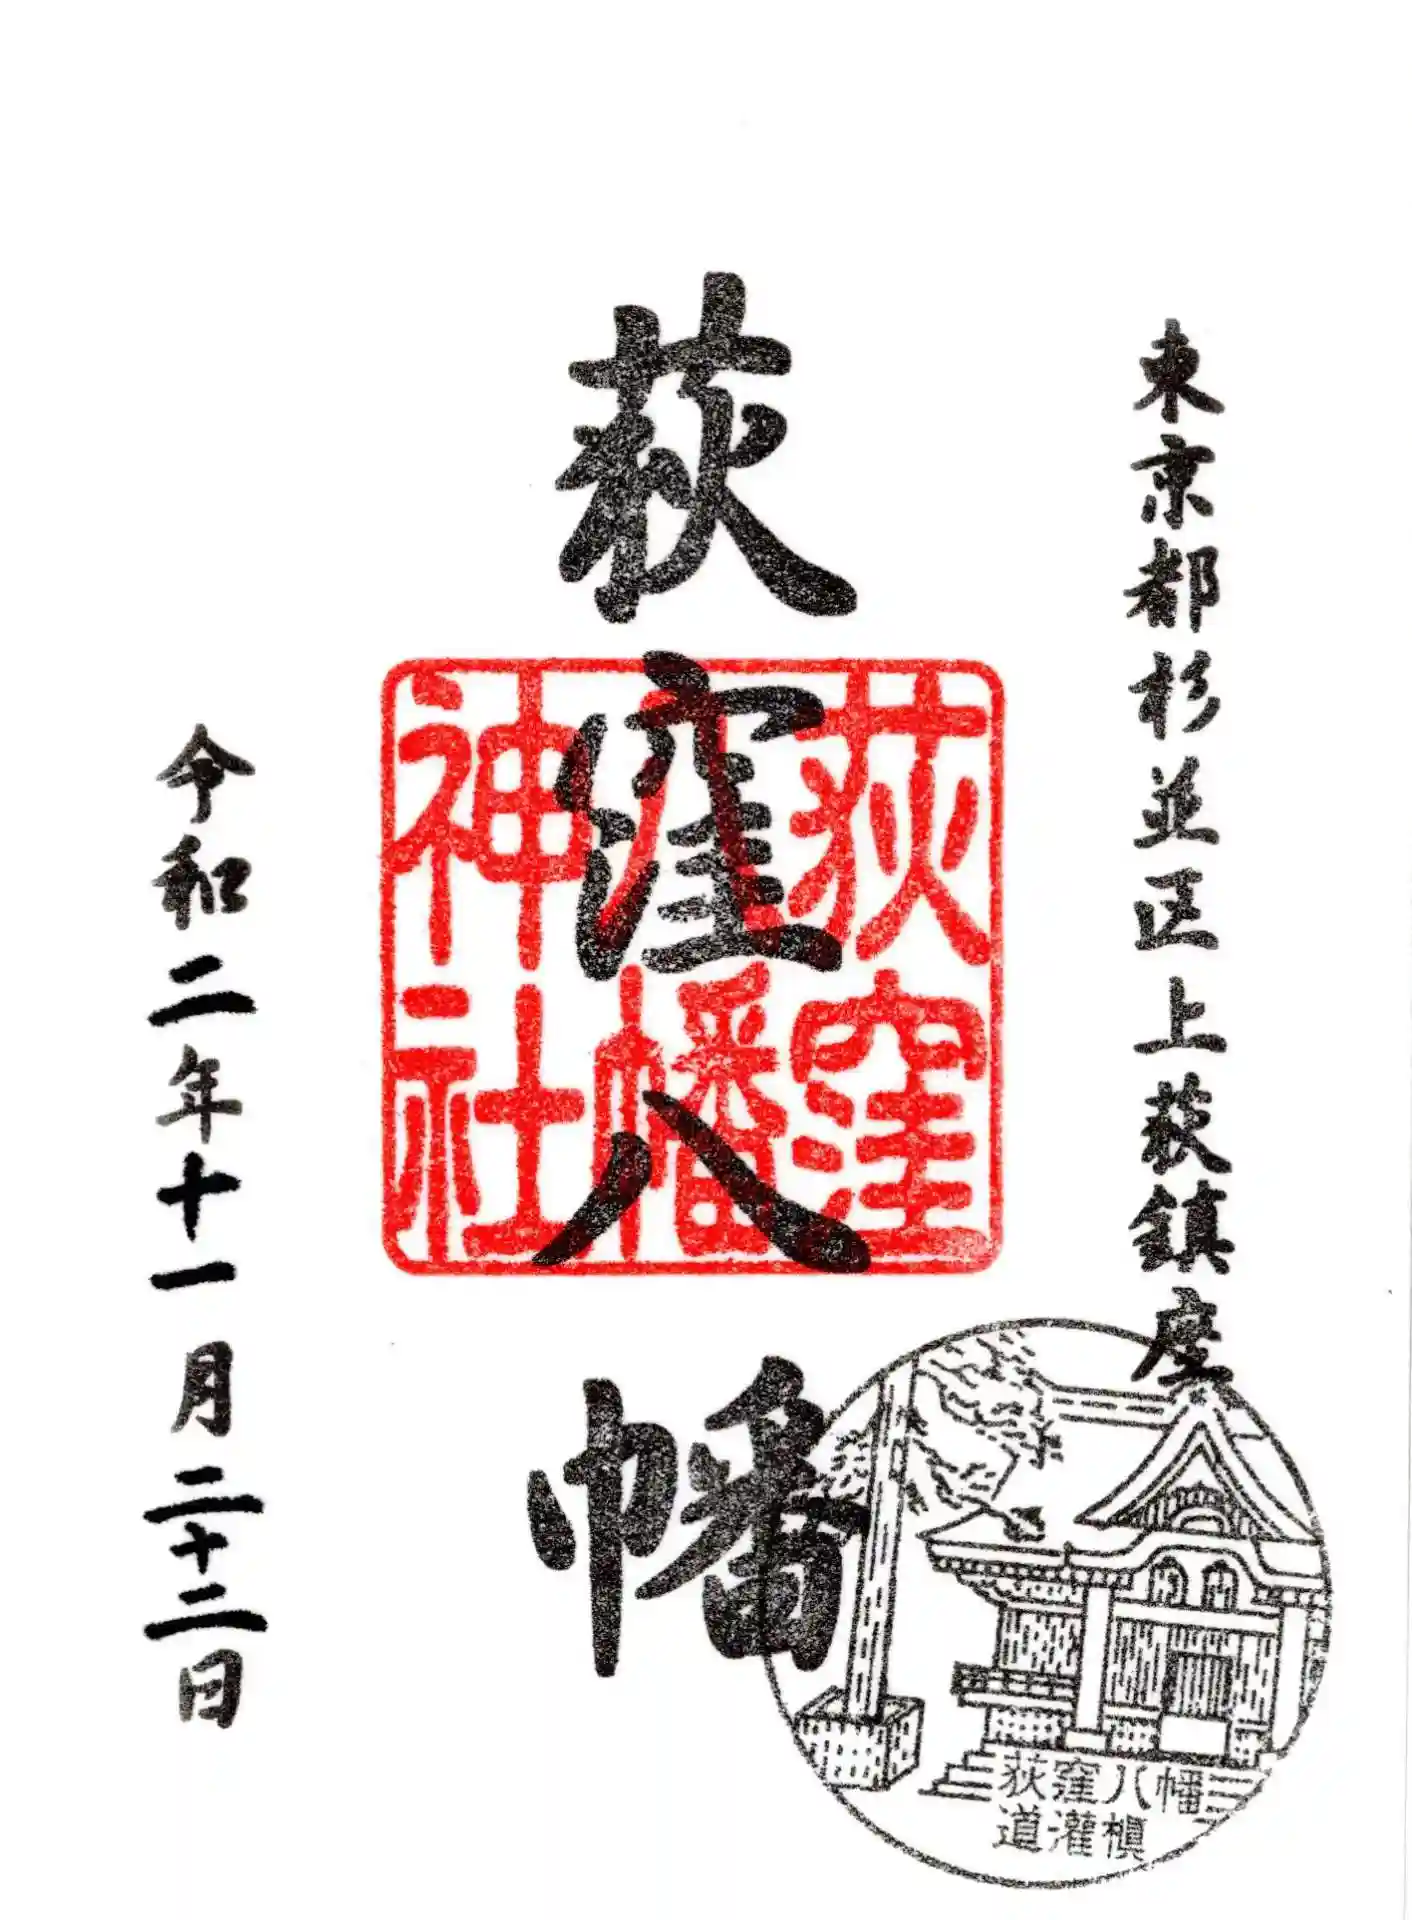 東京都杉並区上荻鎮座
荻窪八幡
荻窪
八幡
神社
令和二年十一月二十二日
荻窪八幡
道灌槇